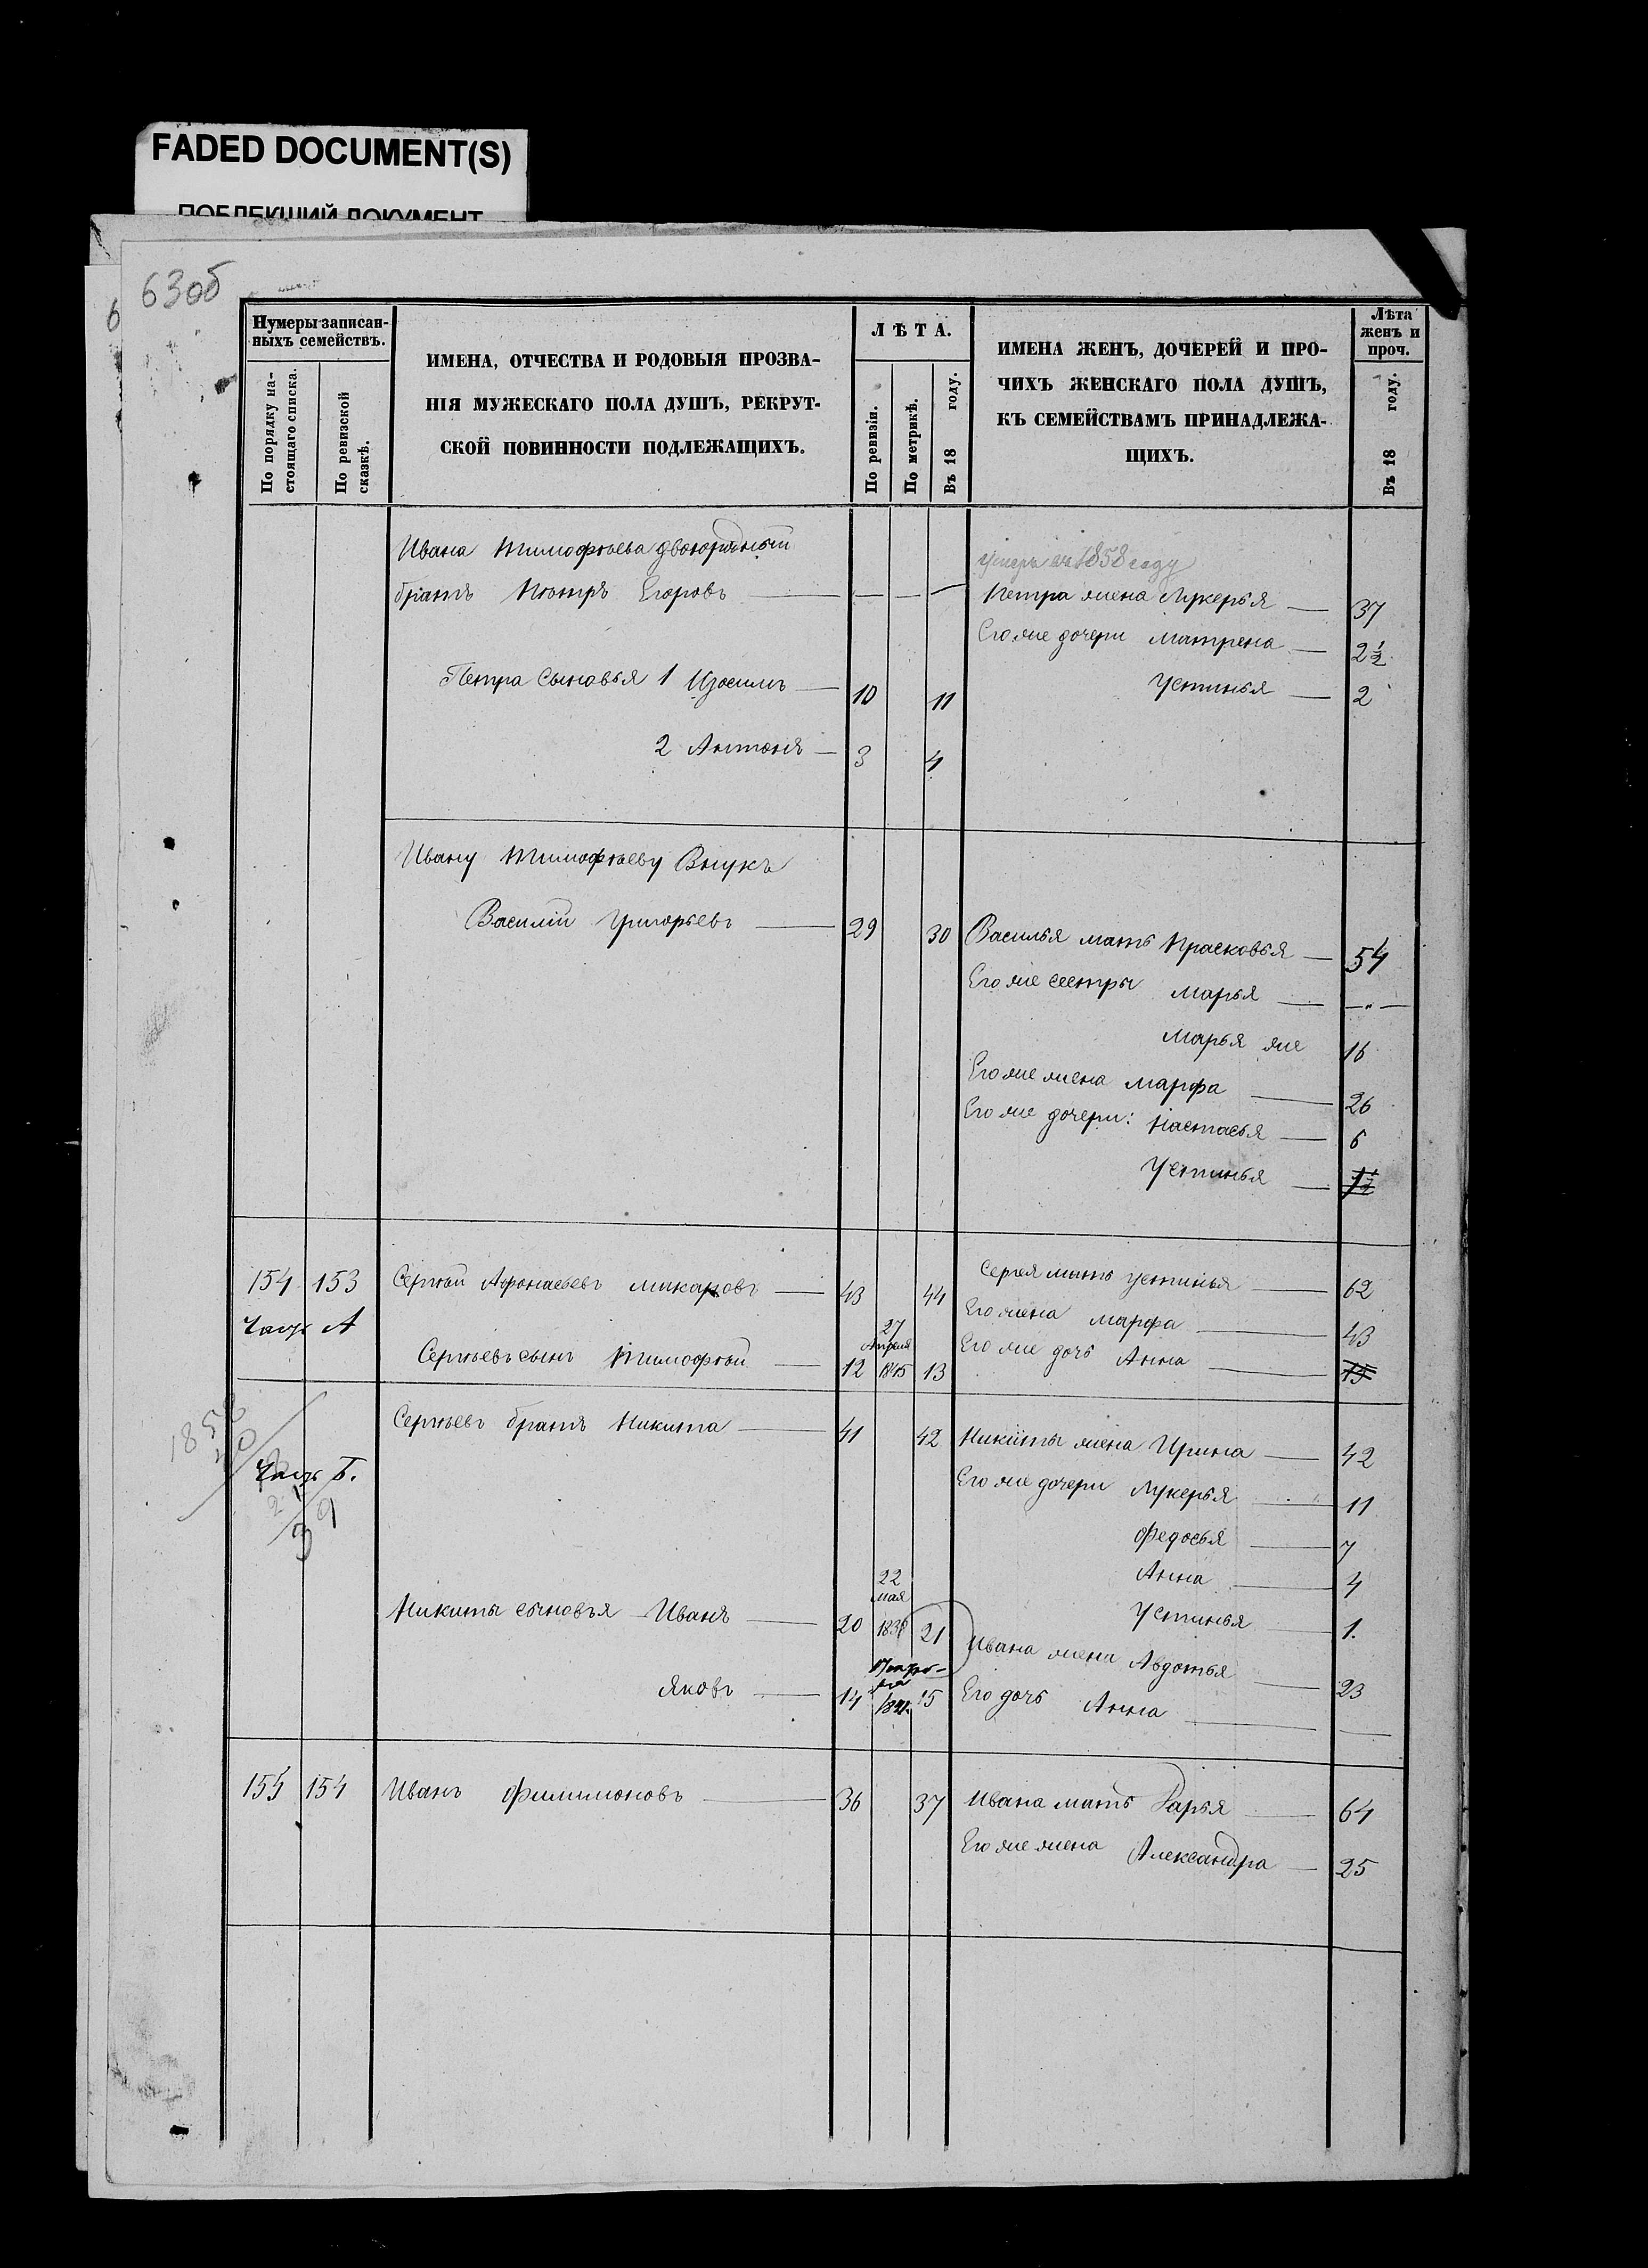 FADED DOCUMENT(S)
ПОБЛЕКШИЙ ДОКУМЕНТ
63об
6
Нумеры записан-
ныхъ семействъ.
По порядку на-
стоящаго списка.
По ревизской
сказкѣ.
ИМЕНА, ОТЧЕСТВА И РОДОВЫЯ ПРОЗВА-
НІЯ МУЖЕСКАГО ПОЛА ДУШЪ, РЕКРУТ-
СКОЙ ПОВИННОСТИ ПОДЛЕЖАЩИХЪ.
ЛѢТА.
По ревизіи.
По метрикѣ.
Въ 18 году.
ИМЕНА ЖЕНЪ, ДОЧЕРЕЙ И ПРО-
ЧИХЪ ЖЕНСКАГО ПОЛА ДУШЪ,
КЪ СЕМЕЙСТВАМЪ ПРИНАДЛЕЖА-
ЩИХЪ.
Лѣта
женъ и
проч.
Въ 18 году.
Ивана Тимофѣева двоюродный
братъ Пётръ Егоровъ — — — —
умеръ въ 1858 году
Петра жена Лукерья — 37
Его же дочери Матрена — 2½
Петра сыновья 1 Изосимъ — 10 11
Устинья — 2
2 Антонъ — 3 4
Ивану Тимофѣеву Внукъ
Василій Григорьевъ — 29 30
Василья мать Прасковья — 54
Его же сестры Марья — —"—
Марья же 16
Его же жена Марфа — 26
Его же дочери: Настасья — 6
Устинья — 1½
154 153 Сергѣй Афонасьевъ Макаровъ — 43 44
Сергея мать Устинья — 62
Часть А
Его жена Марфа — 43
Сергѣевъ сынъ Тимофѣй — 12 27 Апреля 1845 13
Его же дочь Анна — 15
Сергѣевъ братъ Никита — 41 42
Никиты жена Ирина — 42
Часть Б.
Его же дочери Лукерья — 11
39
Федосья — 7
Анна — 4
Никиты сыновья Иванъ — 20 22 мая 21
Устинья — 1.
Ивана жена Авдотья — 23
Яковъ — 14 15
Его дочь Анна — —
155 154 Иванъ Филимоновъ — 36 37
Ивана мать Дарья — 64
Его же жена Александра — 25